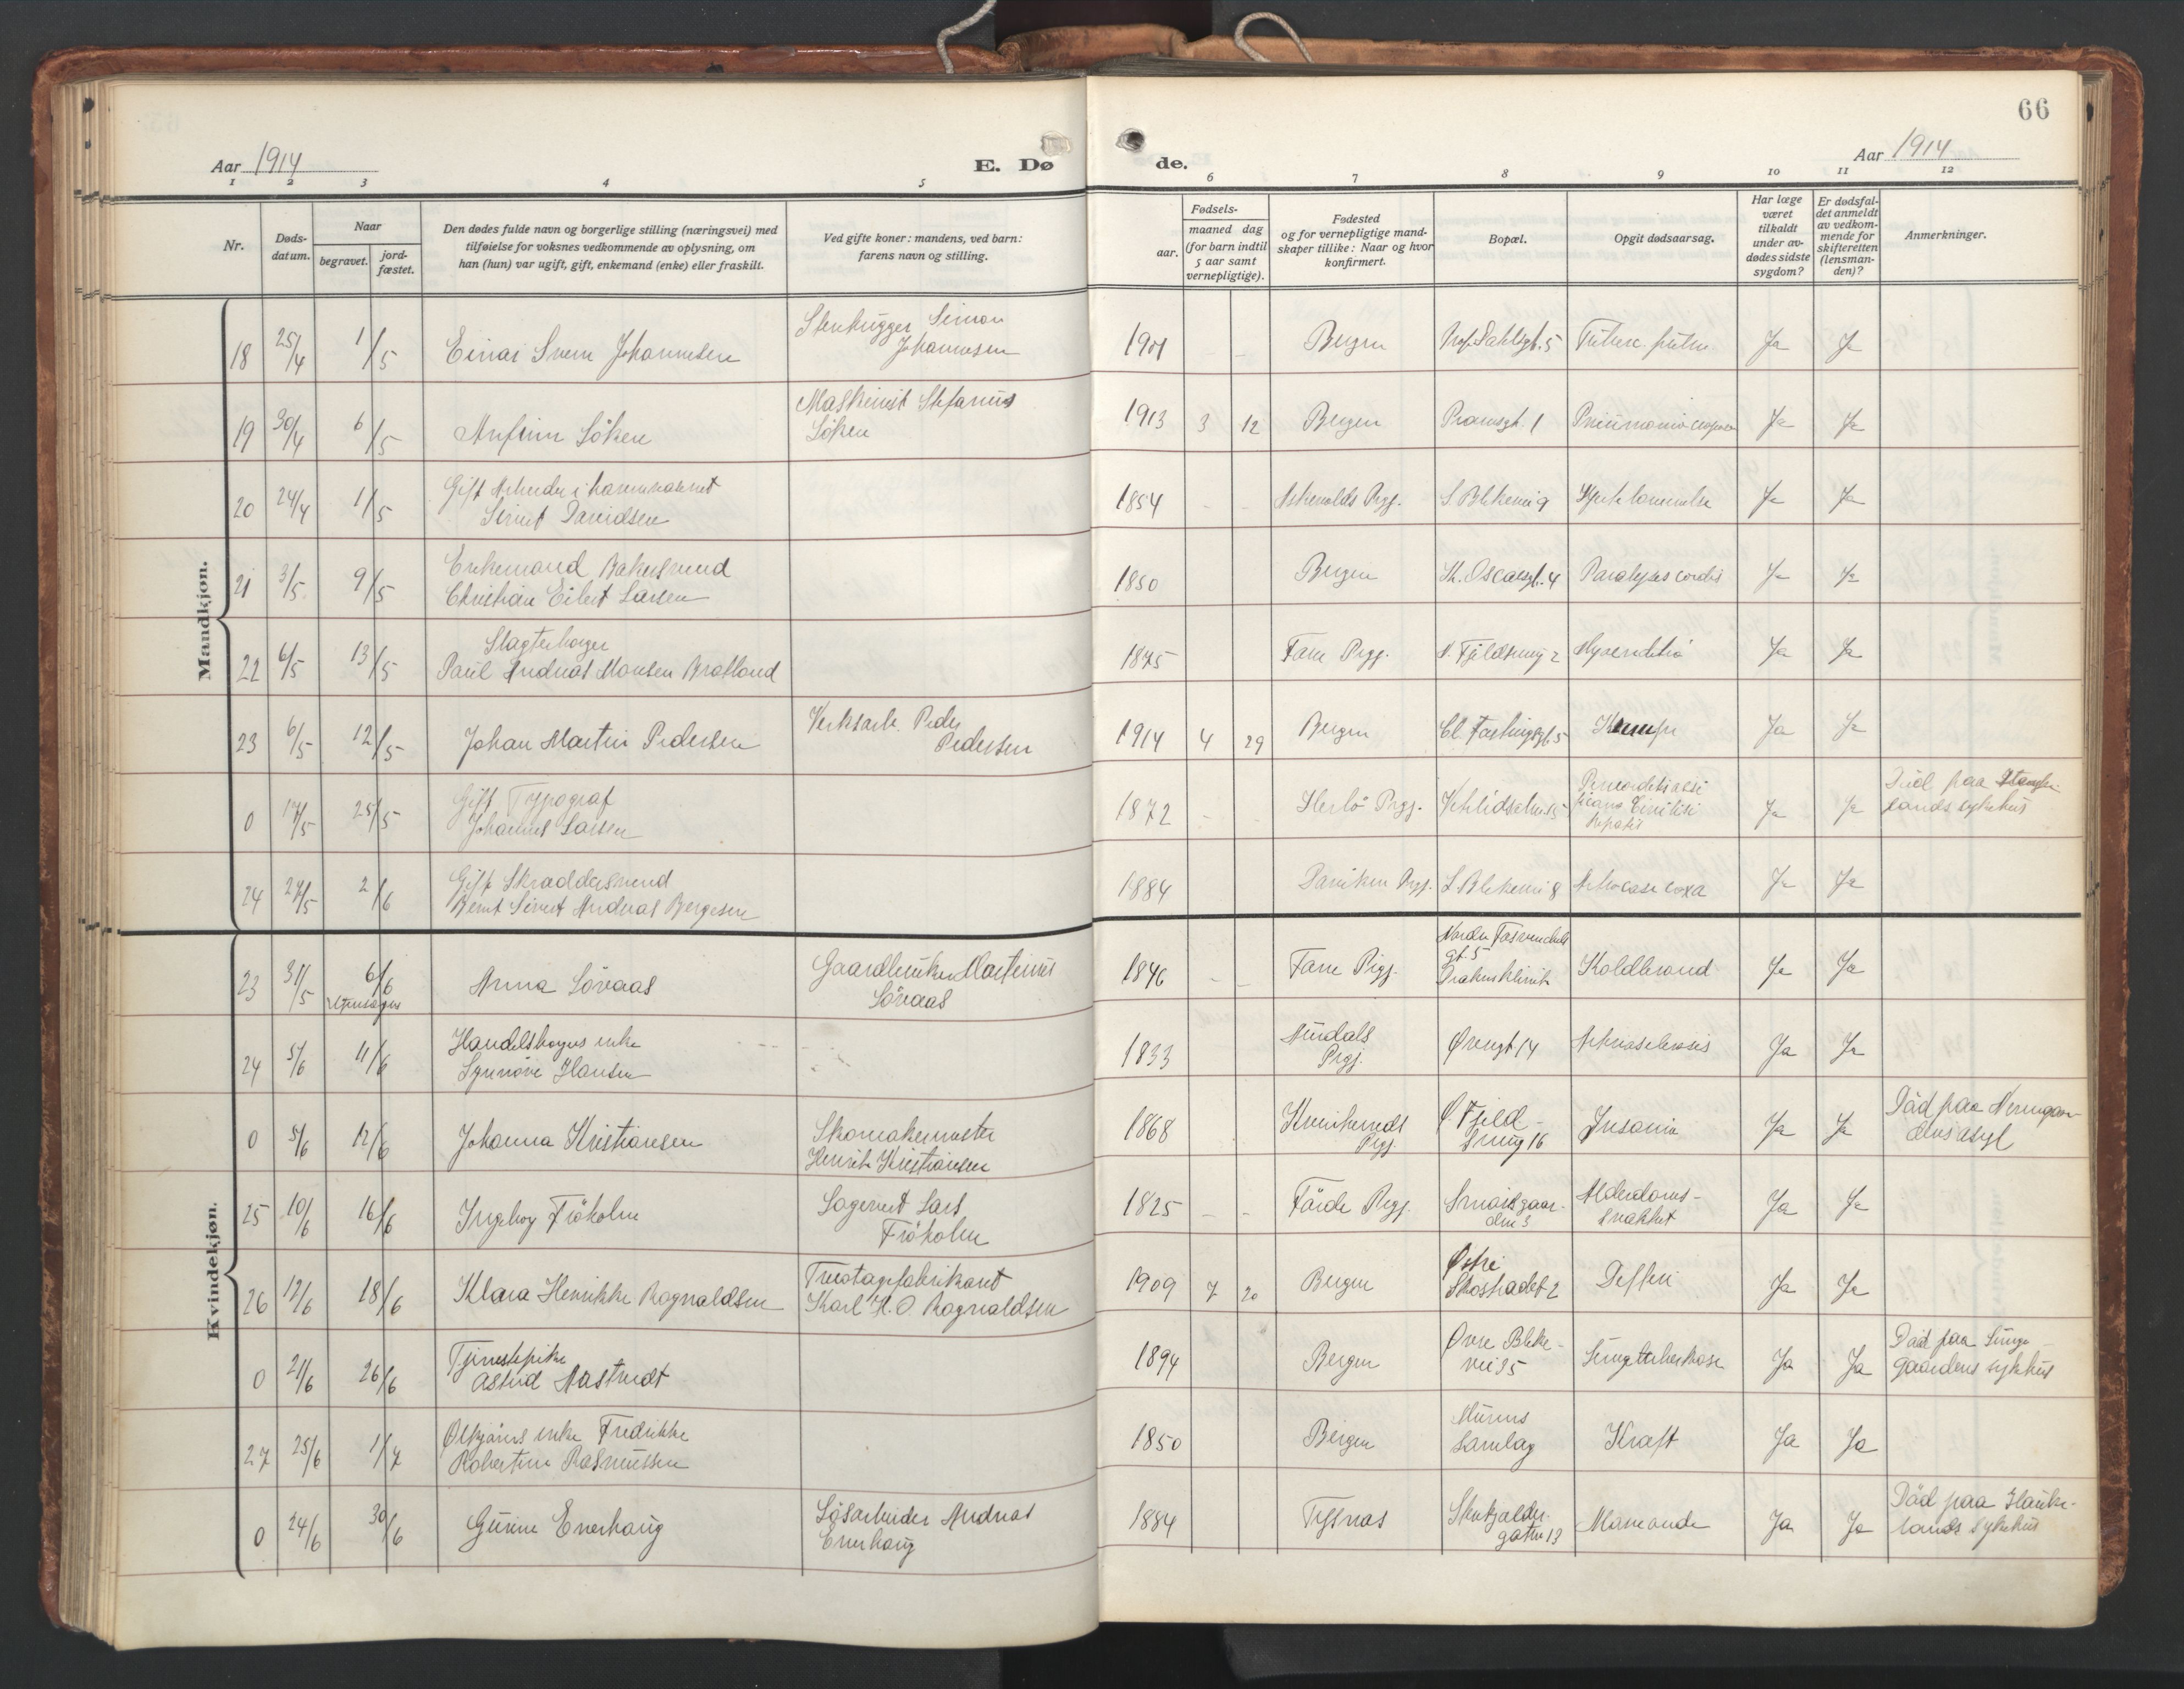 66
Aar 1914
E. Dø
de.
Aar 1914
1 2 3 4 5 6 7 8 9 10 11 12
Nr.
Døds-
datum.
Naar
begravet.
jord-
fæstet.
Den dødes fulde navn og borgerlige stilling (næringsvei) med
tilføielse for voksnes vedkommende av oplysning, om
han (hun) var ugift, gift, enkemand (enke) eller fraskilt.
Ved gifte koner: mandens, ved barn:
farens navn og stilling.
Fødsels-
aar.
maaned dag
(for barn indtil
5 aar samt
vernepligtige).
Fødested
og for vernepligtige mand-
skaper tillike: Naar og hvor
konfirmert.
Bopæl.
Opgit dødsaarsag.
Har læge
været
tilkaldt
under av-
dødes sidste
sygdom?
Er dødsfal-
det anmeldt
av vedkom-
mende for
skifteretten
(lensman-
den)?
Anmerkninger.
Mandkjøn.
18 25/4 1/5 Einar Svem Johannesen Stenhugger Simon
Johannesen 1901 Bergen Prof. Dahlsgt. 5 Ja Ja
19 30/4 6/5 Anfinn Löken Maskinist Stefanus
Löken 1913 3 12 Bergen Pramsgt. 1 Pneumonia Ja Ja
20 24/4 1/5 Gift Arbeider i havnevæsenet
Sivert Davidsen 1854 Askevolds Prgj. S. Blekevei 9 Ja Ja
21 3/5 9/5 Enkemand Bakersvend
Christian Eilert Larsen 1850 Bergen K. Oscarsgt. 4 Paralysis cordis Ja Ja
22 6/5 13/5 Slagterborger
Paul Andreas Monsen Bratland 1845 Fane Prgj. N. Fjeldsmug 2 Myocarditis Ja Ja
23 6/5 12/5 Johan Martin Pedersen Verksarb. Peder
Pedersen 1914 4 29 Bergen Cl. Fastingsgt. 5 Ja Ja
0 17/5 25/5 Gift Typograf
Johannes Larsen 1872 Herlö Prgj. Ja Ja Död paa
lands sykehus
24 27/5 2/6 Gift Skraddersvend
Bernt Sivert Andreas Bergesen 1884 Daviken Prgj. S. Blekevei 8 Ja Ja
Kvindekjøn.
23 31/5 6/6
Utensogns Anna Lövaas Gaardbruker Martinus
Lövaas 1846 Fane Prgj. Nordre
gt. 5 Koldbrand Ja Ja
24 5/6 11/6 Handelsborgers enke
Synnöve Hansen 1833 Prgj. Øvregt 14 Arteriosclerosis Ja Ja
0 5/6 12/6 Johanna Kristiansen Skomakermester
Henrik Kristiansen 1868 Kvinherreds
Prgj. Ø. Fjeld-
smug 16 Insania Ja Ja Död paa Neengaar-
dens asyl
25 10/6 16/6 Ingeborg Fröholm Lars
Fröholm 1825 Förde Prgj. Smaasgaar-
den 3 Alderdoms-
svakhet Ja Ja
26 12/6 18/6 Klara Henrikke Rognaldsen
Karl H. O Rognaldsen 1909 7 20 Bergen Østre
Skostrædet 2 Difteri Ja Ja
0 21/6 26/6 Tjenestepike
Astrid Aastvedt 1894 Bergen Øvre Bleke-
vei 35 Lungetuberkose Ja Ja Död paa Lunge-
gaardens sykehus
27 25/6 1/7 enke Fredrikke
Robertine Rasmussen 1850 Bergen Murens
samlag Kræft Ja Ja
0 24/6 30/6 Gurine Enerhaug Lösarbeider Andreas
Enerhaug 1884 Tysnæs Skutjelder-
gaten 13 Ja Ja Död paa Hauke-
lands sykehus